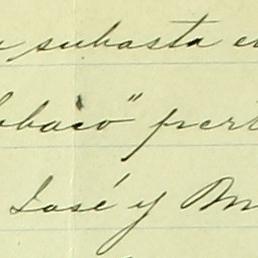 subasta e
baco" pert
José y M